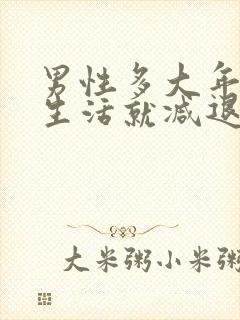 男性多大年
生活就减退
大米粥小米粥